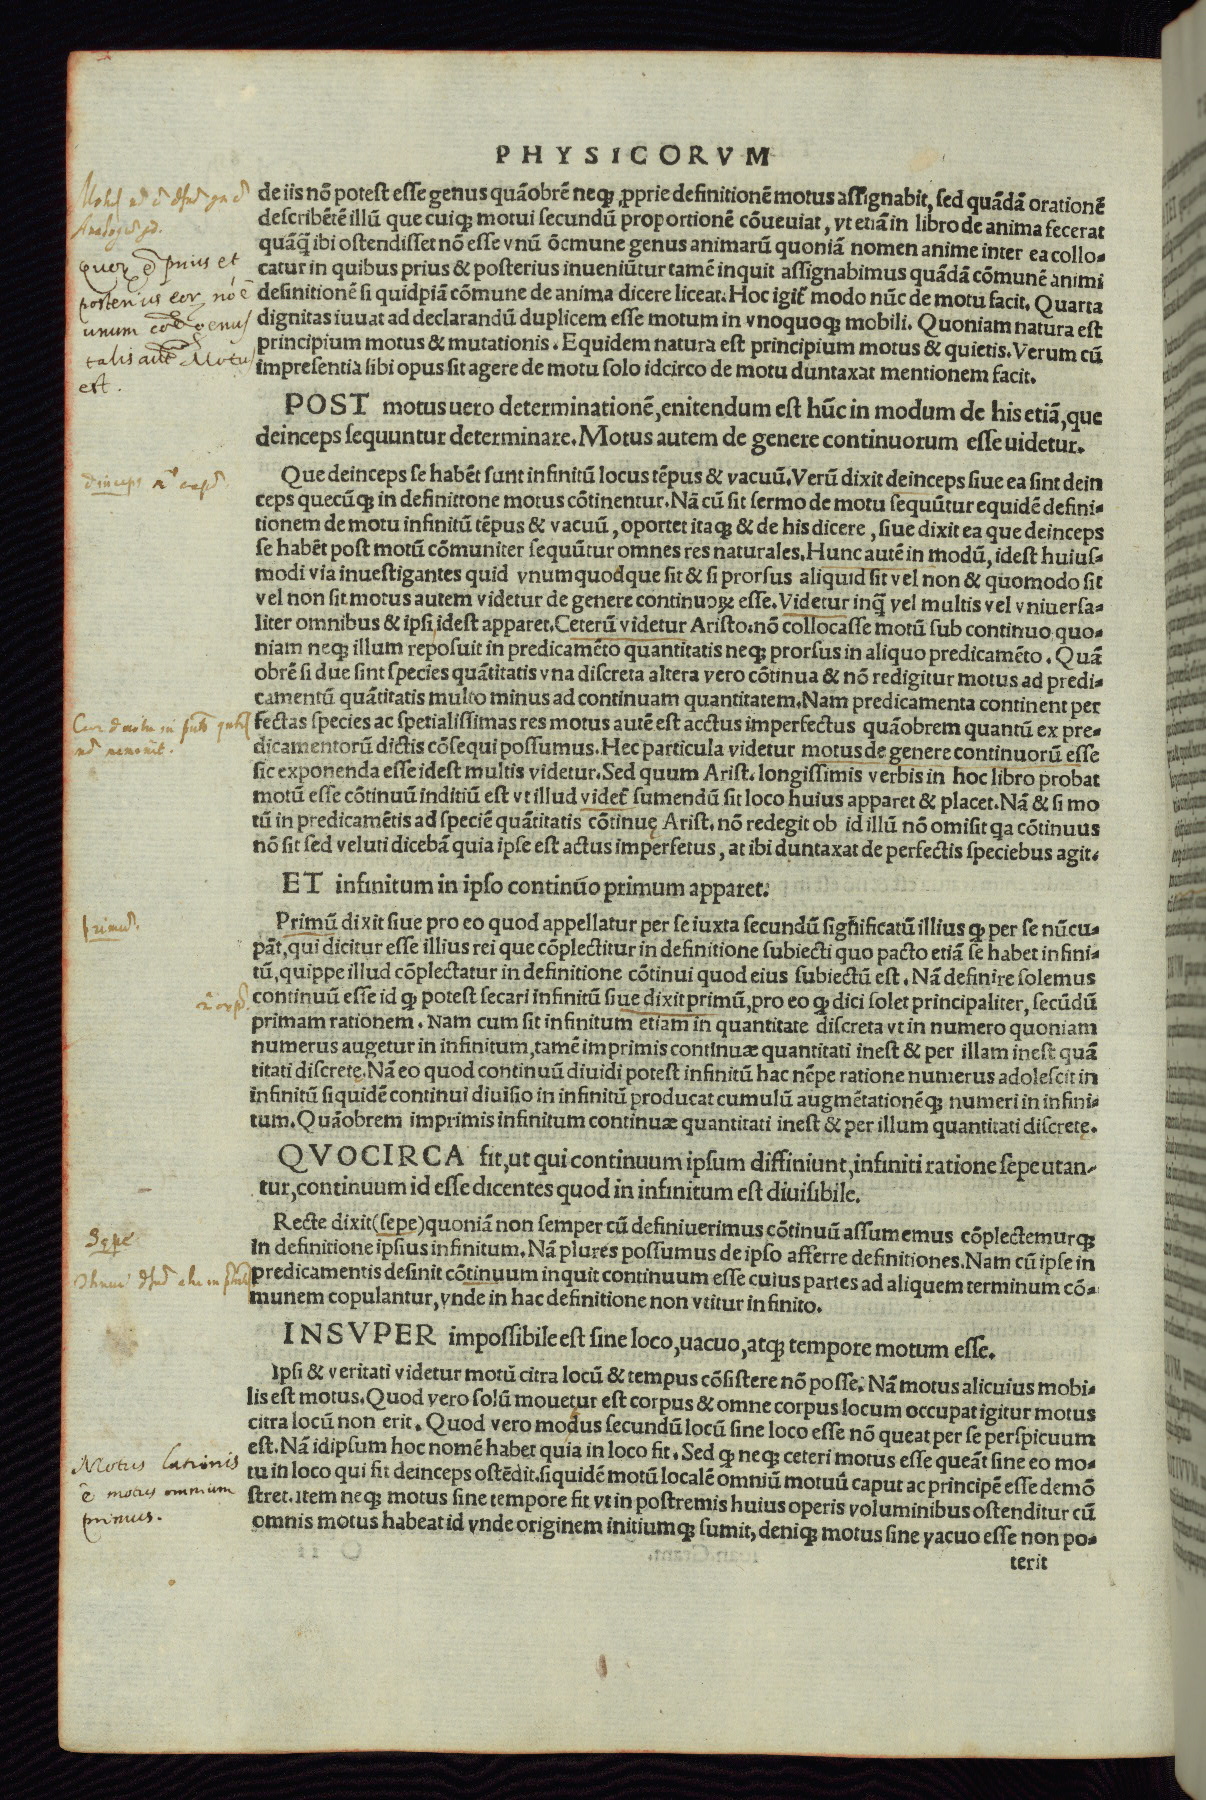 PHYSICORVM
de iis nõ potest esse genus quãobrẽ neqꝫ ꝓprie definitionẽ motus assignabit, sed quãdã orationẽ
describẽtẽ illũ que cuiqꝫ motui secundũ proportionẽ cõueuiat, vt etiã in libro de anima fecerat
quãq̃ ibi ostendisset nõ esse vnũ õcmune genus animarũ quoniã nomen anime inter ea collo-
catur in quibus prius & posterius inueniũtur tamẽ inquit assignabimus quãdã cõmunẽ animi
definitionẽ si quidpiã cõmune de anima dicere liceat. Hoc igit̃ modo nũc de motu facit. Quarta
dignitas iuuat ad declarandũ duplicem esse motum in vnoquoqꝫ mobili. Quoniam natura est
principium motus & mutationis. Equidem natura est principium motus & quietis. Verum cũ
impresentia sibi opus sit agere de motu solo idcirco de motu duntaxat mentionem facit.
quoꝝ ẽ prius et
posterius eoꝝ nõ ẽ
unum genus
talis aũt Motus
est.
POST motus uero determinationẽ, enitendum est hũc in modum de his etiã, que
deinceps sequuntur determinare. Motus autem de genere continuorum esse uidetur.
Que deinceps se habẽt sunt infinitũ locus tẽpus & vacuũ. Verũ dixit deinceps siue ea sint dein
ceps quecũqꝫ in definittone motus cõtinentur. Nã cũ sit sermo de motu sequũtur equidẽ defini-
tionem de motu infinitũ tẽpus & vacuũ, oportet itaqꝫ & de his dicere, siue dixit ea que deinceps
se habẽt post motũ cõmuniter sequũtur omnes res naturales. Hunc autẽ in modũ, idest huius-
modi via inuestigantes quid vnumquodque sit & si prorsus aliquid sit vel non & quomodo sit
vel non sit motus autem videtur de genere continuoꝝ esse. Videtur inq̃ vel multis vel vniuersa-
liter omnibus & ipsi idest apparet. Ceterũ videtur Aristo. nõ collocasse motũ sub continuo quo-
niam neqꝫ illum reposuit in predicamẽto quantitatis neqꝫ prorsus in aliquo predicamẽto. Quã
obrẽ si due sint species quãtitatis vna discreta altera vero cõtinua & nõ redigitur motus ad predi-
camentũ quãtitatis multo minus ad continuam quantitatem. Nam predicamenta continent per
fectas species ac spetialissimas res motus autẽ est acctus imperfectus quãobrem quantũ ex pre-
dicamentorũ dictis cõsequi possumus. Hec particula videtur motus de genere continuorũ esse
sic exponenda esse idest multis videtur. Sed quum Arist. longissimis verbis in hoc libro probat
motũ esse cõtinuũ inditiũ est vt illud videt̃ sumendũ sit loco huius apparet & placet. Nã & si mo
tũ in predicamẽtis ad speciẽ quãtitatis cõtinuę Arist. nõ redegit ob id illũ nõ omisit qa cõtinuus
nõ sit sed veluti dicebã quia ipse est actus imperfetus, at ibi duntaxat de perfectis speciebus agit.
ET infinitum in ipso continũo primum apparet.
primũ.
Primũ dixit siue pro eo quod appellatur per se iuxta secundũ sighificatũ illius qꝫ per se nũcu-
pãt, qui dicitur esse illius rei que cõplectitur in definitione subiecti quo pacto etiã se habet infini-
tũ, quippe illud cõplectatur in definitione cõtinui quod eius subiectũ est. Nã definire solemus
continuũ esse id qꝫ potest secari infinitũ siue dixit primũ, pro eo qꝫ dici solet principaliter, secũdũ
primam rationem. Nam cum sit infinitum etiam in quantitate discreta vt in numero quoniam
numerus augetur in infinitum, tamẽ imprimis continuæ quantitati inest & per illam inest quã
titati discretę. Nã eo quod continuũ diuidi potest infinitũ hac nẽpe ratione numerus adolescit in
infinitũ siquidẽ continui diuisio in infinitũ producat cumulũ augmẽtationẽqꝫ numeri in infini-
tum. Quãobrem imprimis infinitum continuæ quantitati inest & per illum quantitati discretę.
QVOCIRCA fit, ut qui continuum ipsum diffiniunt, infiniti ratione sepe utan-
tur, continuum id esse dicentes quod in infinitum est diuisibile.
Sępe
Recte dixit (sepe) quoniã non semper cũ definiuerimus cõtinuũ assumemus cõplectemurqꝫ
in definitione ipsius infinitum. Nã plures possumus de ipso afferre definitiones. Nam cũ ipse in
predicamentis definit cõtinuum inquit continuum esse cuius partes ad aliquem terminum cõ-
munem copulantur, vnde in hac definitione non vtitur infinito.
INSVPER impossibile est sine loco, uacuo, atqꝫ tempore motum esse.
Ipsi & veritati videtur motũ citra locũ & tempus cõsistere nõ posse. Nã motus alicuius mobi-
lis est motus. Quod vero solũ mouetur est corpus & omne corpus locum occupat igitur motus
citra locũ non erit. Quod vero modus secundũ locũ sine loco esse nõ queat per se perspicuum
est. Nã idipsum hoc nomẽ habet quia in loco fit. Sed qꝫ neqꝫ ceteri motus esse queãt sine eo mo-
tu in loco qui fit deinceps ostẽdit. siquidẽ motũ localẽ omniũ motuũ caput ac principẽ esse demõ
stret. item neqꝫ motus sine tempore fit vt in postremis huius operis voluminibus ostenditur cũ
omnis motus habeat id vnde originem initiumqꝫ sumit, deniqꝫ motus sine vacuo esse non po-
terit
Motus lationis
ẽ motus omnium
primus.